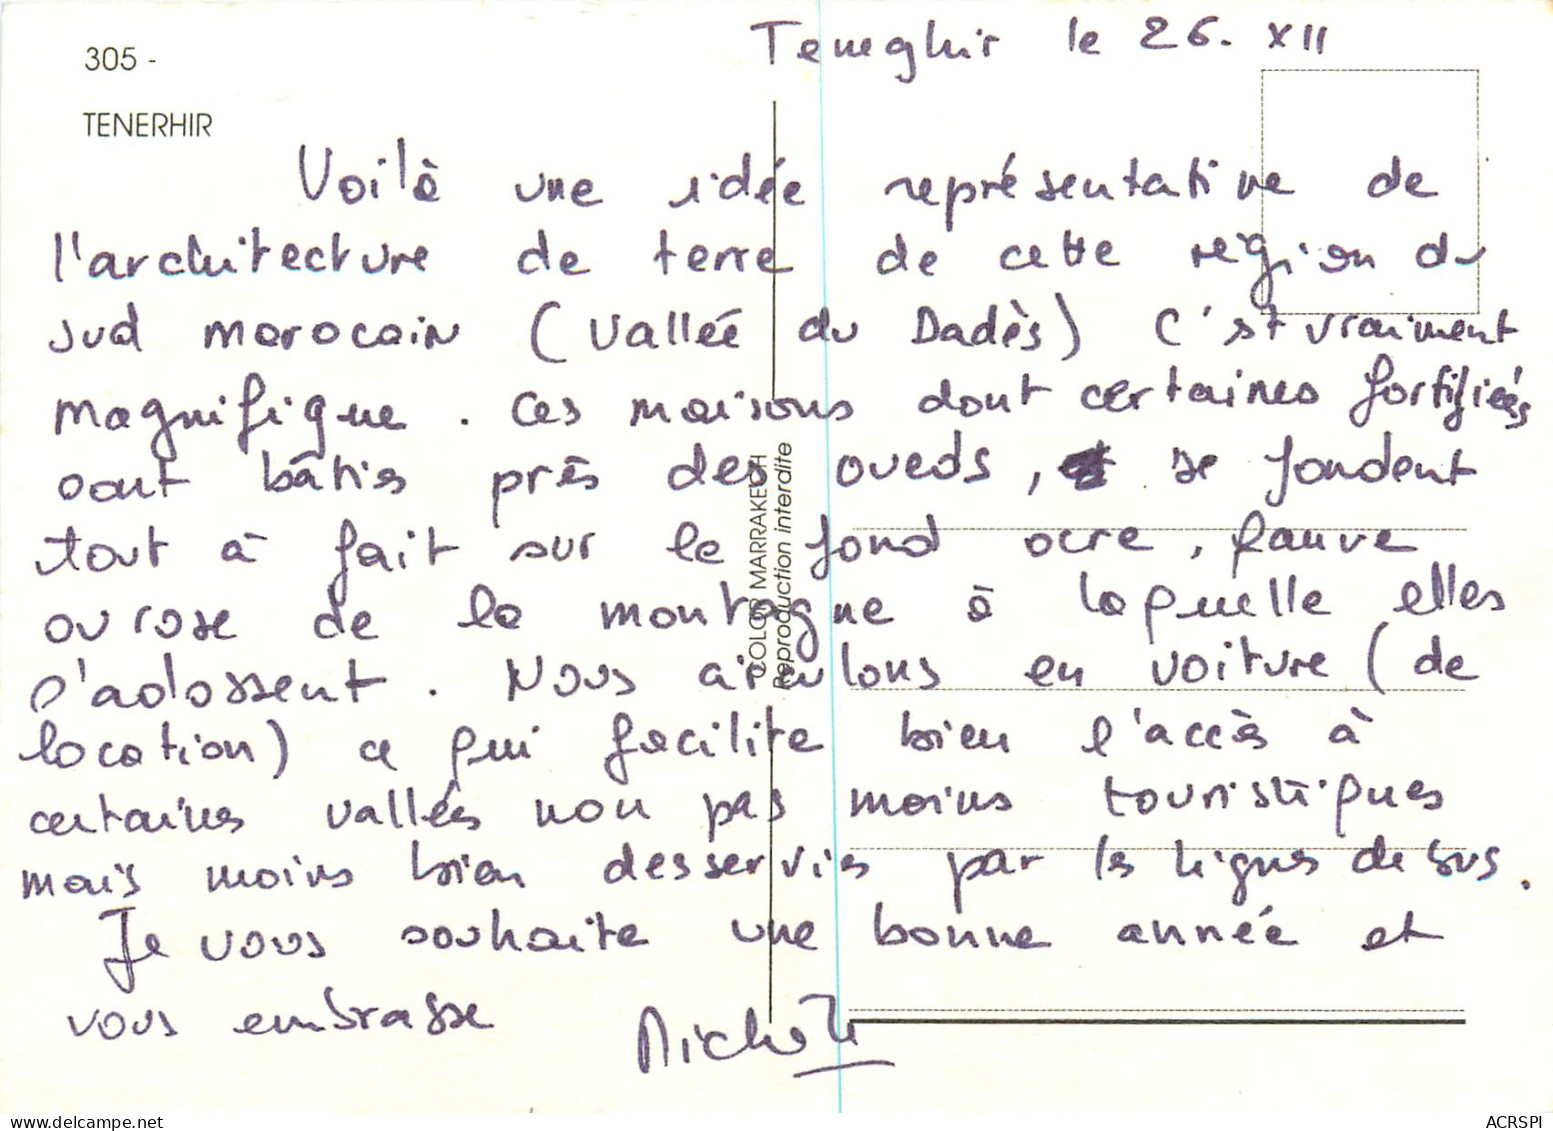 Temeghir le 26. XII
305 -
TENERHIR
Voilà une idée représentative de
l'architecture de terre de cette région du
sud marocain (Vallée du Dadès) C'st vraiment
magnifique. Ces maisons dont certaines fortifiées
sont bâties près des oueds, se fondent
tout à fait sur le fond ocre, fauve
ou rose de la montagne à laquelle elles
s'adossent. Nous circulons en voiture (de
location) ce qui facilite bien l'accès à
certaines vallées non pas moins touristiques
mais moins bien desservies par les lignes de bus.
Je vous souhaite une bonne année et
vous embrasse
COLOR MARRAKECH
Reproduction interdite
ACRSPI